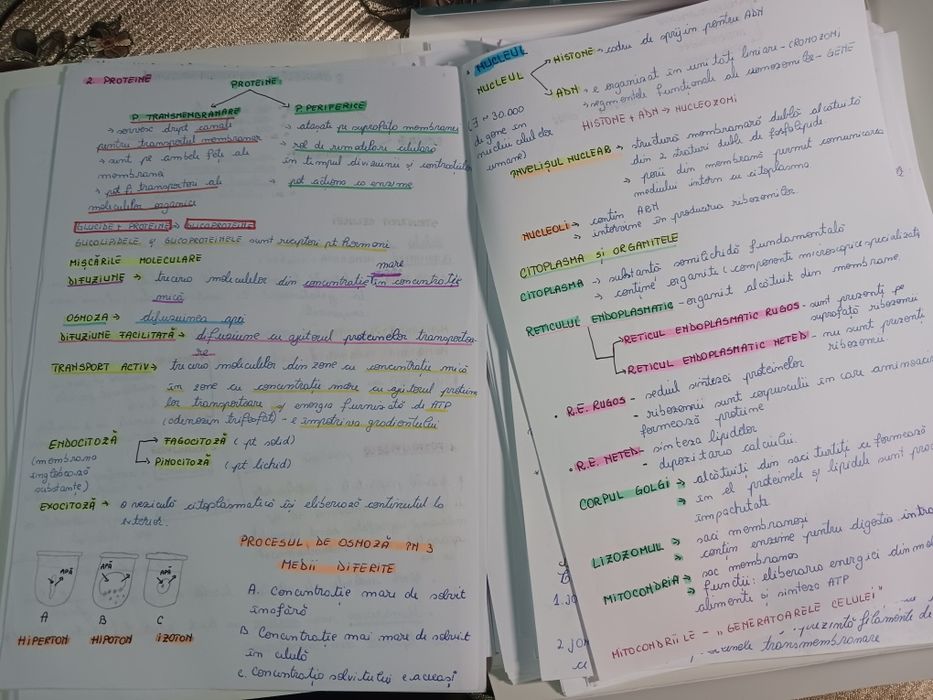 2. PROTEINE
PROTEINE
P. TRANSMEMBRANARE
→ servesc drept canale
pentru transportul membranar
→ sunt pe ambele fețe ale
membranei
→ pot fi transportori ai
moleculelor organice
P. PERIFERICE
→ atașate pe suprafața membranei
→ rol de remodelare celulară
în timpul diviziunii și contracției
→ pot acționa ca enzime
GLUCIDE + PROTEINE → GLICOPROTEINE
GLICOLIPIDELE și GLICOPROTEINELE sunt receptori pt hormoni
MIȘCĂRILE MOLECULARE
DIFUZIUNE → trecerea moleculelor din concentrație mare în concentrație
mică
OSMOZA → difuziunea apei
DIFUZIUNE FACILITATĂ → difuziune cu ajutorul proteinelor transportoa-
re
TRANSPORT ACTIV → trecerea moleculelor din zone cu concentrație mică
în zone cu concentrație mare cu ajutorul protein
lor transportoare și energia furnizată de ATP
(adenozin trifosfat) - e împotriva gradientului
ENDOCITOZĂ
(membrana
înglobează
substanțe)
→ FAGOCITOZĂ (pt solid)
→ PINOCITOZĂ (pt lichid)
EXOCITOZĂ → o veziculă citoplasmatică își eliberează conținutul la
exterior.
APĂ
APĂ
APĂ
A
B
C
HIPERTON
HIPOTON
IZOTON
PROCESUL DE OSMOZĂ ÎN 3
MEDII DIFERITE
A. Concentrație mare de solvit
în afară
B Concentrație mai mare de solvit
în celulă
C. Concentrația solvitului e aceeași
NUCLEUL
NUCLEUL
HISTONE → cadru de sprijin pentru ADN
ADN → e organizat în unități liniare - CROMOZOMI
→ segmentele funcționale ale cromozomilor - GENE
(∃ ~ 30.000
de gene în
nucleul celulelor
umane)
HISTONE + ADN → NUCLEOZOMI
ÎNVELIȘUL NUCLEAR → structură membranară dublă alcătuită
din 2 straturi duble de fosfolipide
→ porii din membrană permit comunicarea
mediului intern cu citoplasma
NUCLEOLI → conțin ARN
→ intervine în producerea ribozomilor
CITOPLASMA și ORGANITELE
CITOPLASMA → substanță semilichidă fundamentală
→ conține organite (componente microscopice specializate)
RETICULUL ENDOPLASMATIC - organit alcătuit din membrane
→ RETICUL ENDOPLASMATIC RUGOS - sunt prezenți pe
suprafață ribozomii
→ RETICUL ENDOPLASMATIC NETED - nu sunt prezenți
ribozomii
• R.E. RUGOS - sediul sintezei proteinelor
- ribozomii sunt corpusculi în care aminoaciz
formează proteine
• R.E. NETED - sinteza lipidelor
- depozitarea calciului.
CORPUL GOLGI → alcătuiți din saci turtiți ce formează
→ în el proteinele și lipidele sunt proc
împachetate
LIZOZOMUL → saci membranoși
→ conțin enzime pentru digestia intra
MITOCONDRIA → sac membranos
→ funcții: eliberarea energiei din mol
alimente și sinteza ATP
MITOCONDRIILE - "GENERATOARELE CELULEI"
prezintă filamente de
transmembranare
1.
2.